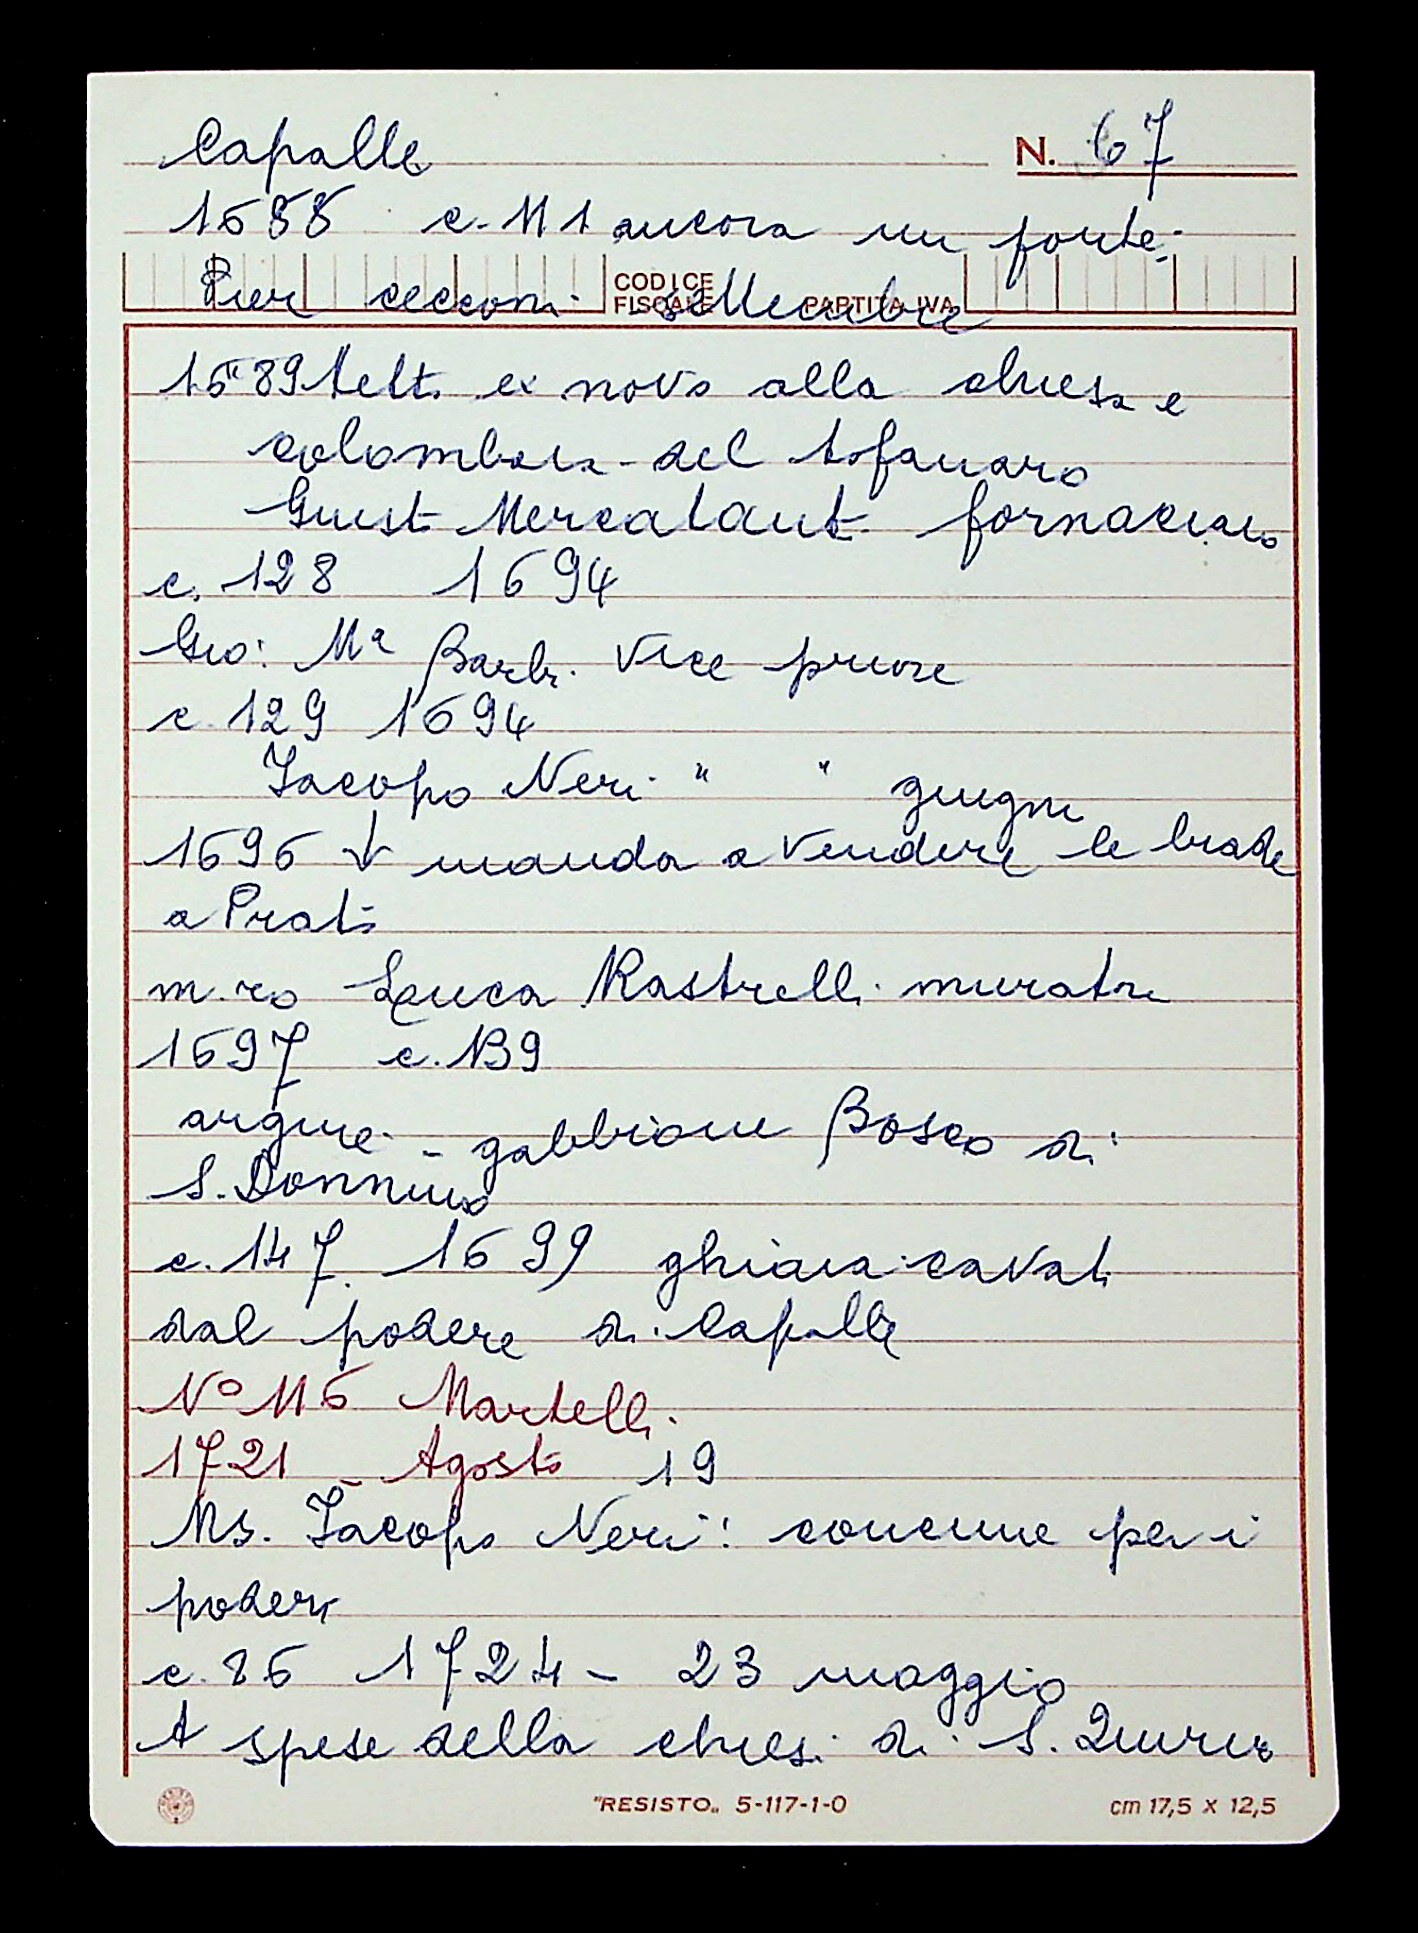 Capalle N. 67
1688 c. 111 ancora un fonte:
Pier Cecconi CODICE FISCALE settembre PARTITA IVA
1689 tetto ex novo alla chiesa e
colombaia del tofanaro
Giust Mercatant. fornaciaio
c. 128 1694
Gio: Mª Barb. Vice priore
c. 129 1694
Jacopo Neri " " giugni
1696 ↓ manda a vendere le biade
a Prato
m.ro Luca Rastrelli muratore
1697 c. 139
argine - gabbione Bosco di
S. Donnino
c. 147. 1699 ghiaia cavati
dal podere di Capalle
Nº 116 Martelli
1721 - Agosto 19
Ms. Jacopo Neri: concime per i
poderi
c. 86 1724 - 23 maggio
A spese della chiesa di S. Quirico
"RESISTO" 5-117-1-0 cm 17,5 x 12,5